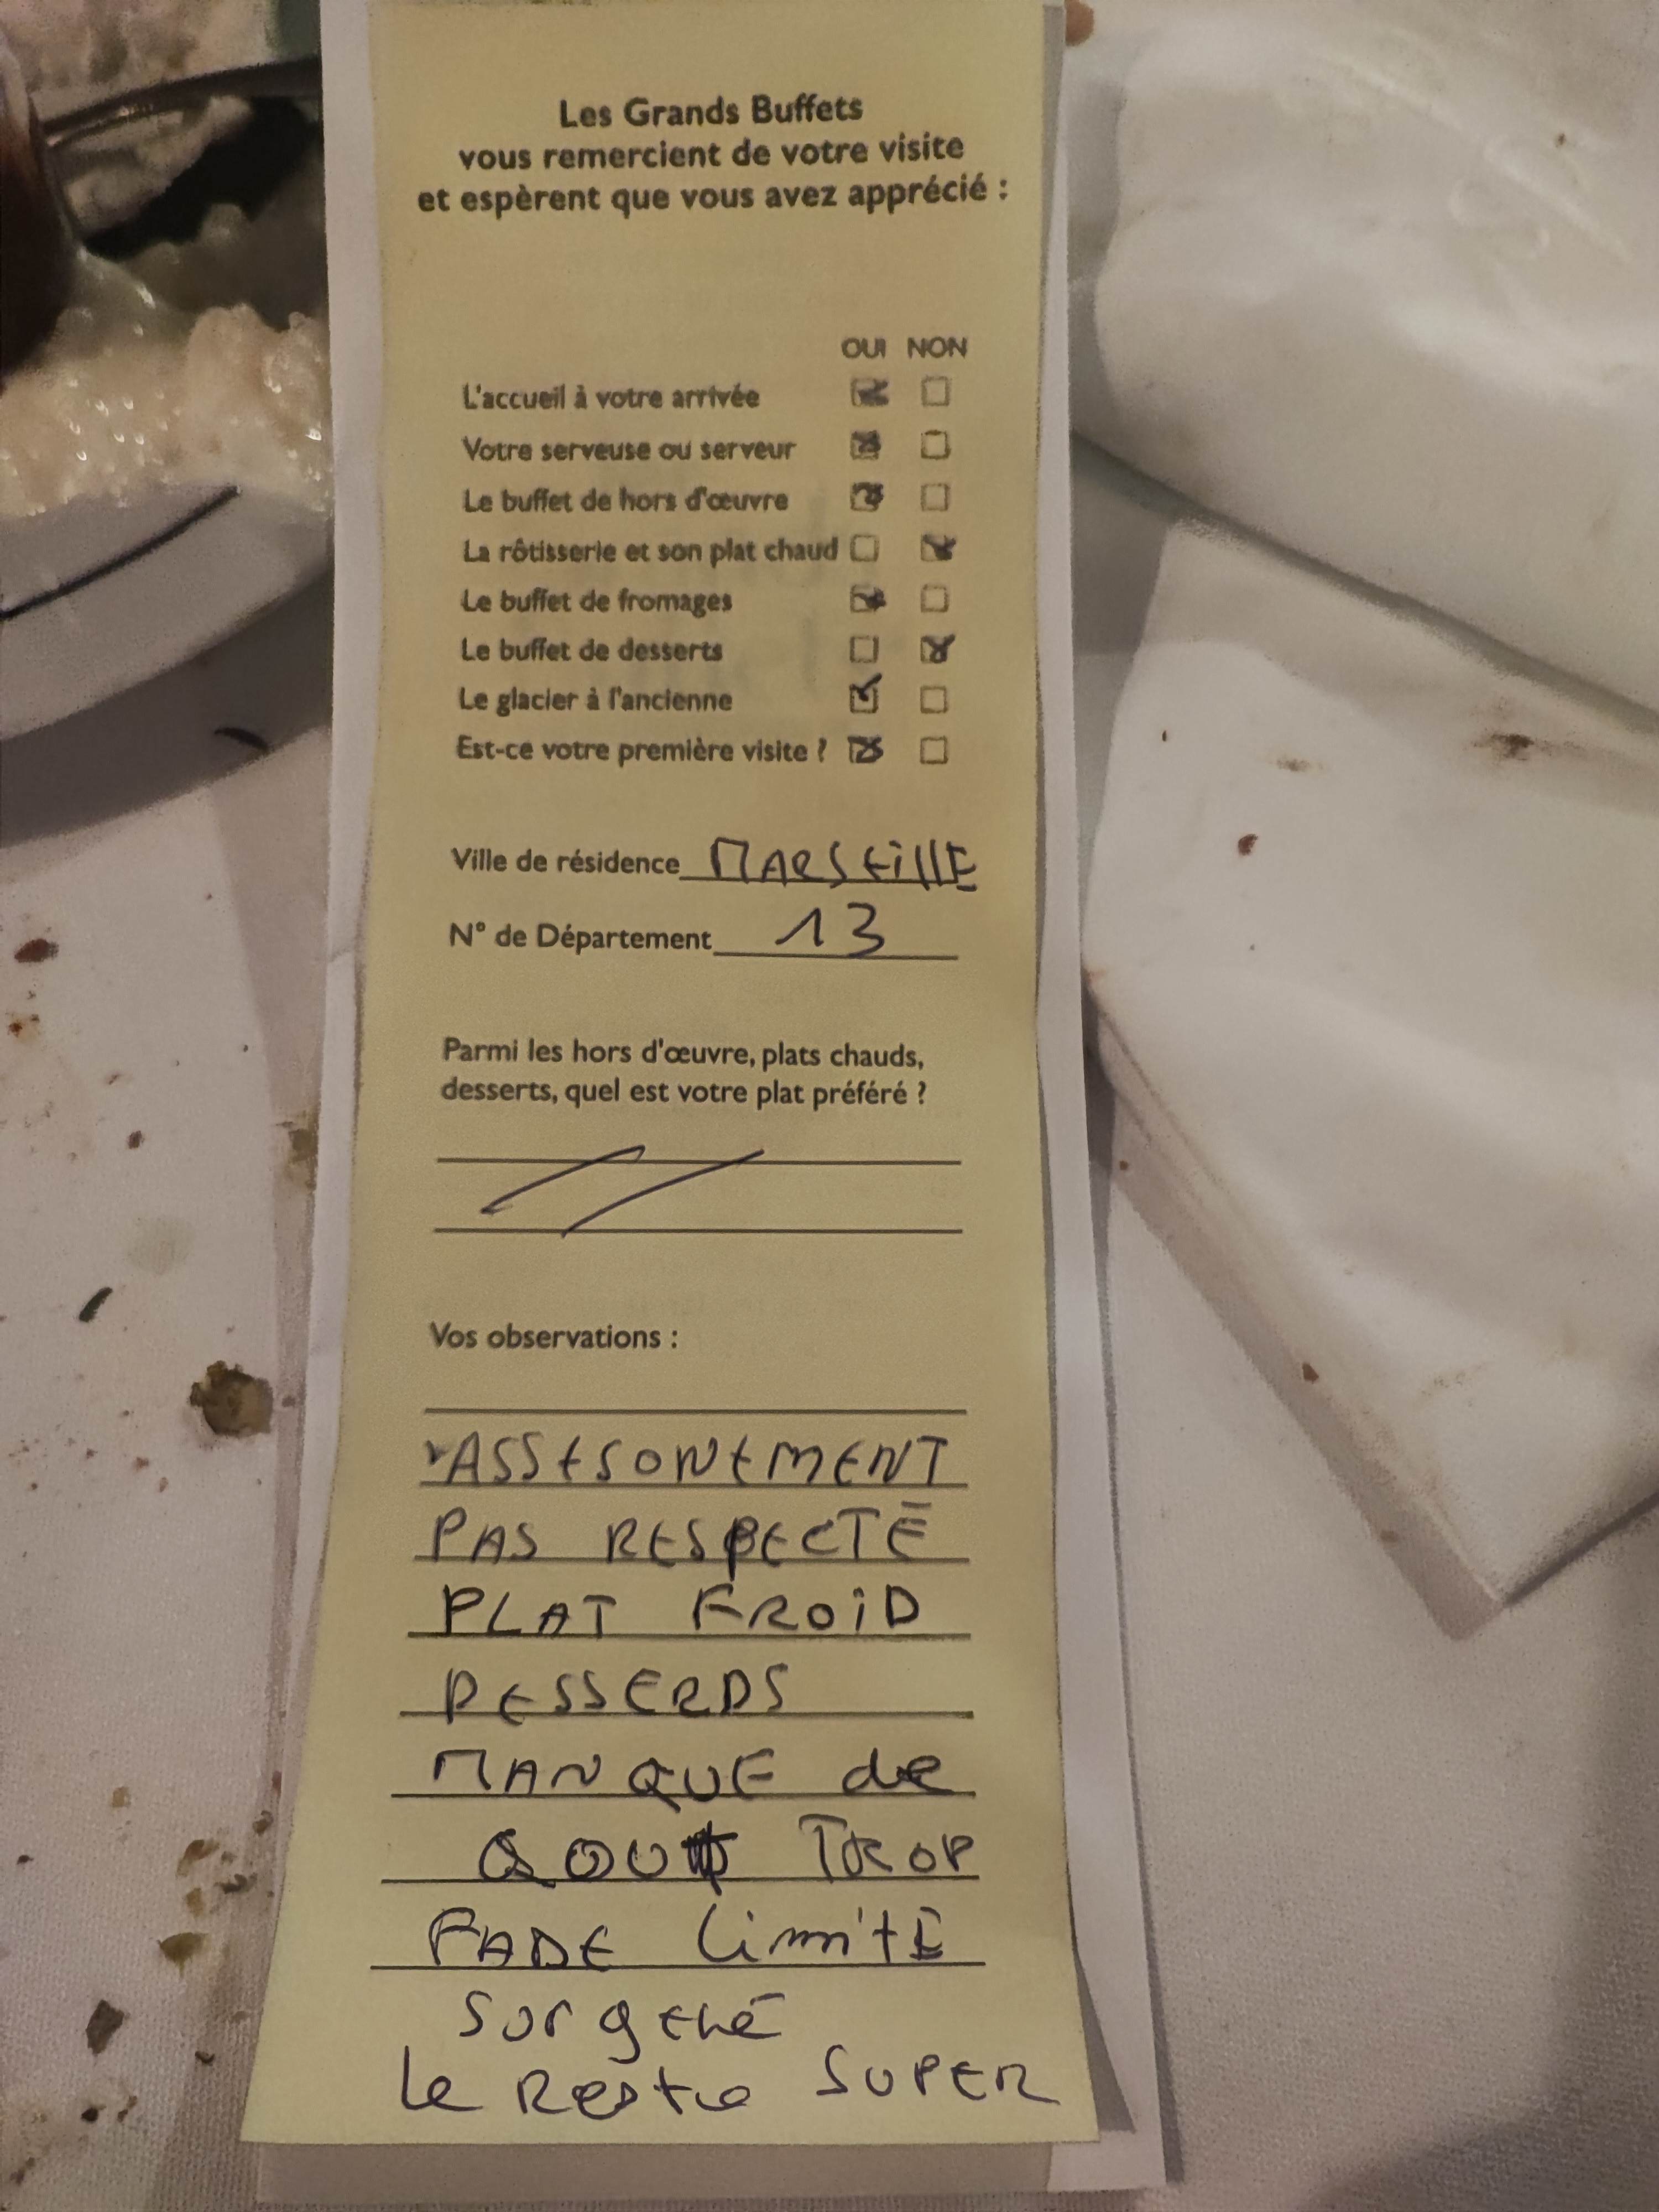 Les Grands Buffets
vous remercient de votre visite
et espèrent que vous avez apprécié :
OUI NON
L'accueil à votre arrivée
Votre serveuse ou serveur
Le buffet de hors d'œuvre
La rôtisserie et son plat chaud
Le buffet de fromages
Le buffet de desserts
Le glacier à l'ancienne
Est-ce votre première visite ?
Ville de résidence MARSEillE
N° de Département 13
Parmi les hors d'œuvre, plats chauds,
desserts, quel est votre plat préféré ?
Vos observations :
ASSESONEMENT
PAS RESPECTÉ
PLAT FROiD
DESSERDS
MANQUE de
GOUT TROP
FADE LimitE
surgelé
Le Reste SUPER